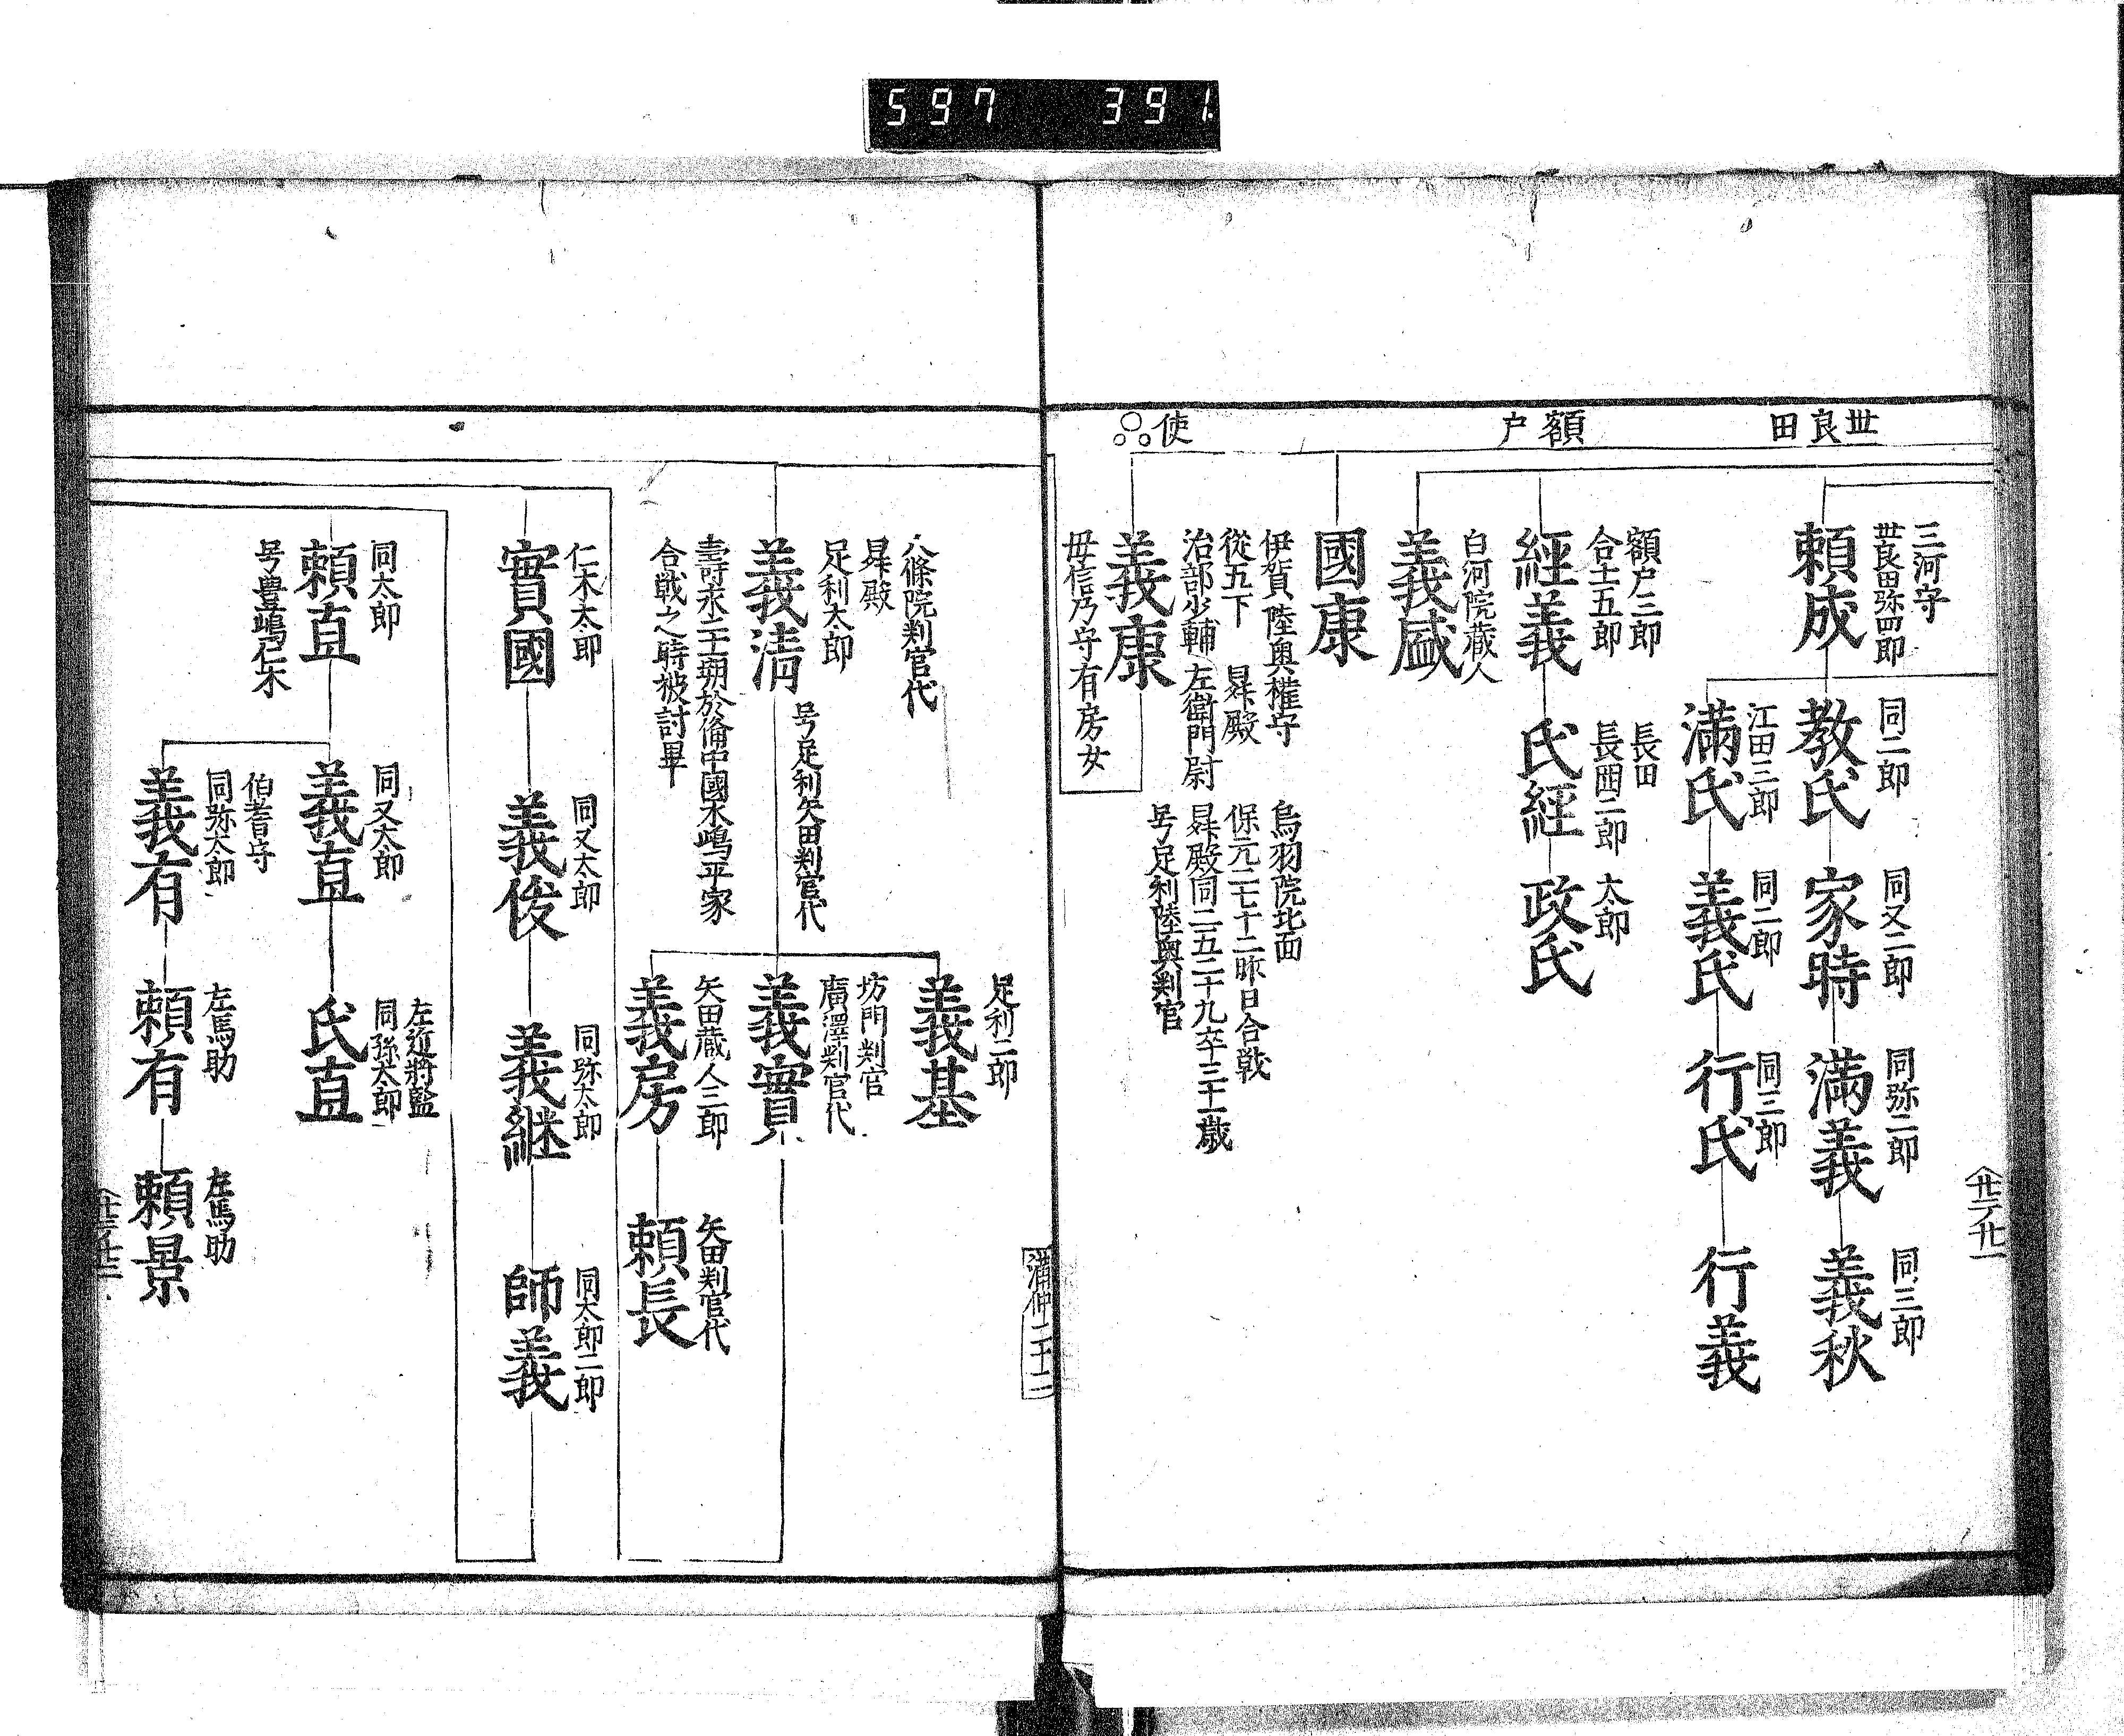 597 391
世良田
額戸
使
三河守
世良田弥四郎
頼成
同二郎
教氏
同又二郎
家時
同弥二郎
満義
同三郎
義秋
江田三郎
満氏
同二郎
義氏
同三郎
行氏
行義
額戸三郎
合土五郎
經義
長田
長西二郎
氏經
太郎
政氏
白河院蔵人
義盛
國康
伊賀陸奥権守
從五下 昇殿
治部少輔 左衛門尉
義康
母信乃守有房女
鳥羽院北面
保元元七十二昨日合戦
昇殿同二五二十九卒三十一歳
号足利陸奥判官
満仲二十二
八條院判官代
昇殿
足利太郎
義清
号足利矢田判官代
壽永二十一朔於備中國水嶋平家
合戦之時被討畢
足利二郎
義基
坊門判官
廣澤判官代
義實
矢田蔵人二郎
義房
矢田判官代
頼長
仁木太郎
實國
同又太郎
義俊
同弥太郎
義継
同太郎二郎
師義
同太郎
頼直
号豊嶋仁木
同又太郎
義直
左近将監
同孫太郎
氏直
伯耆守
同弥太郎
義有
左馬助
頼有
左馬助
頼景